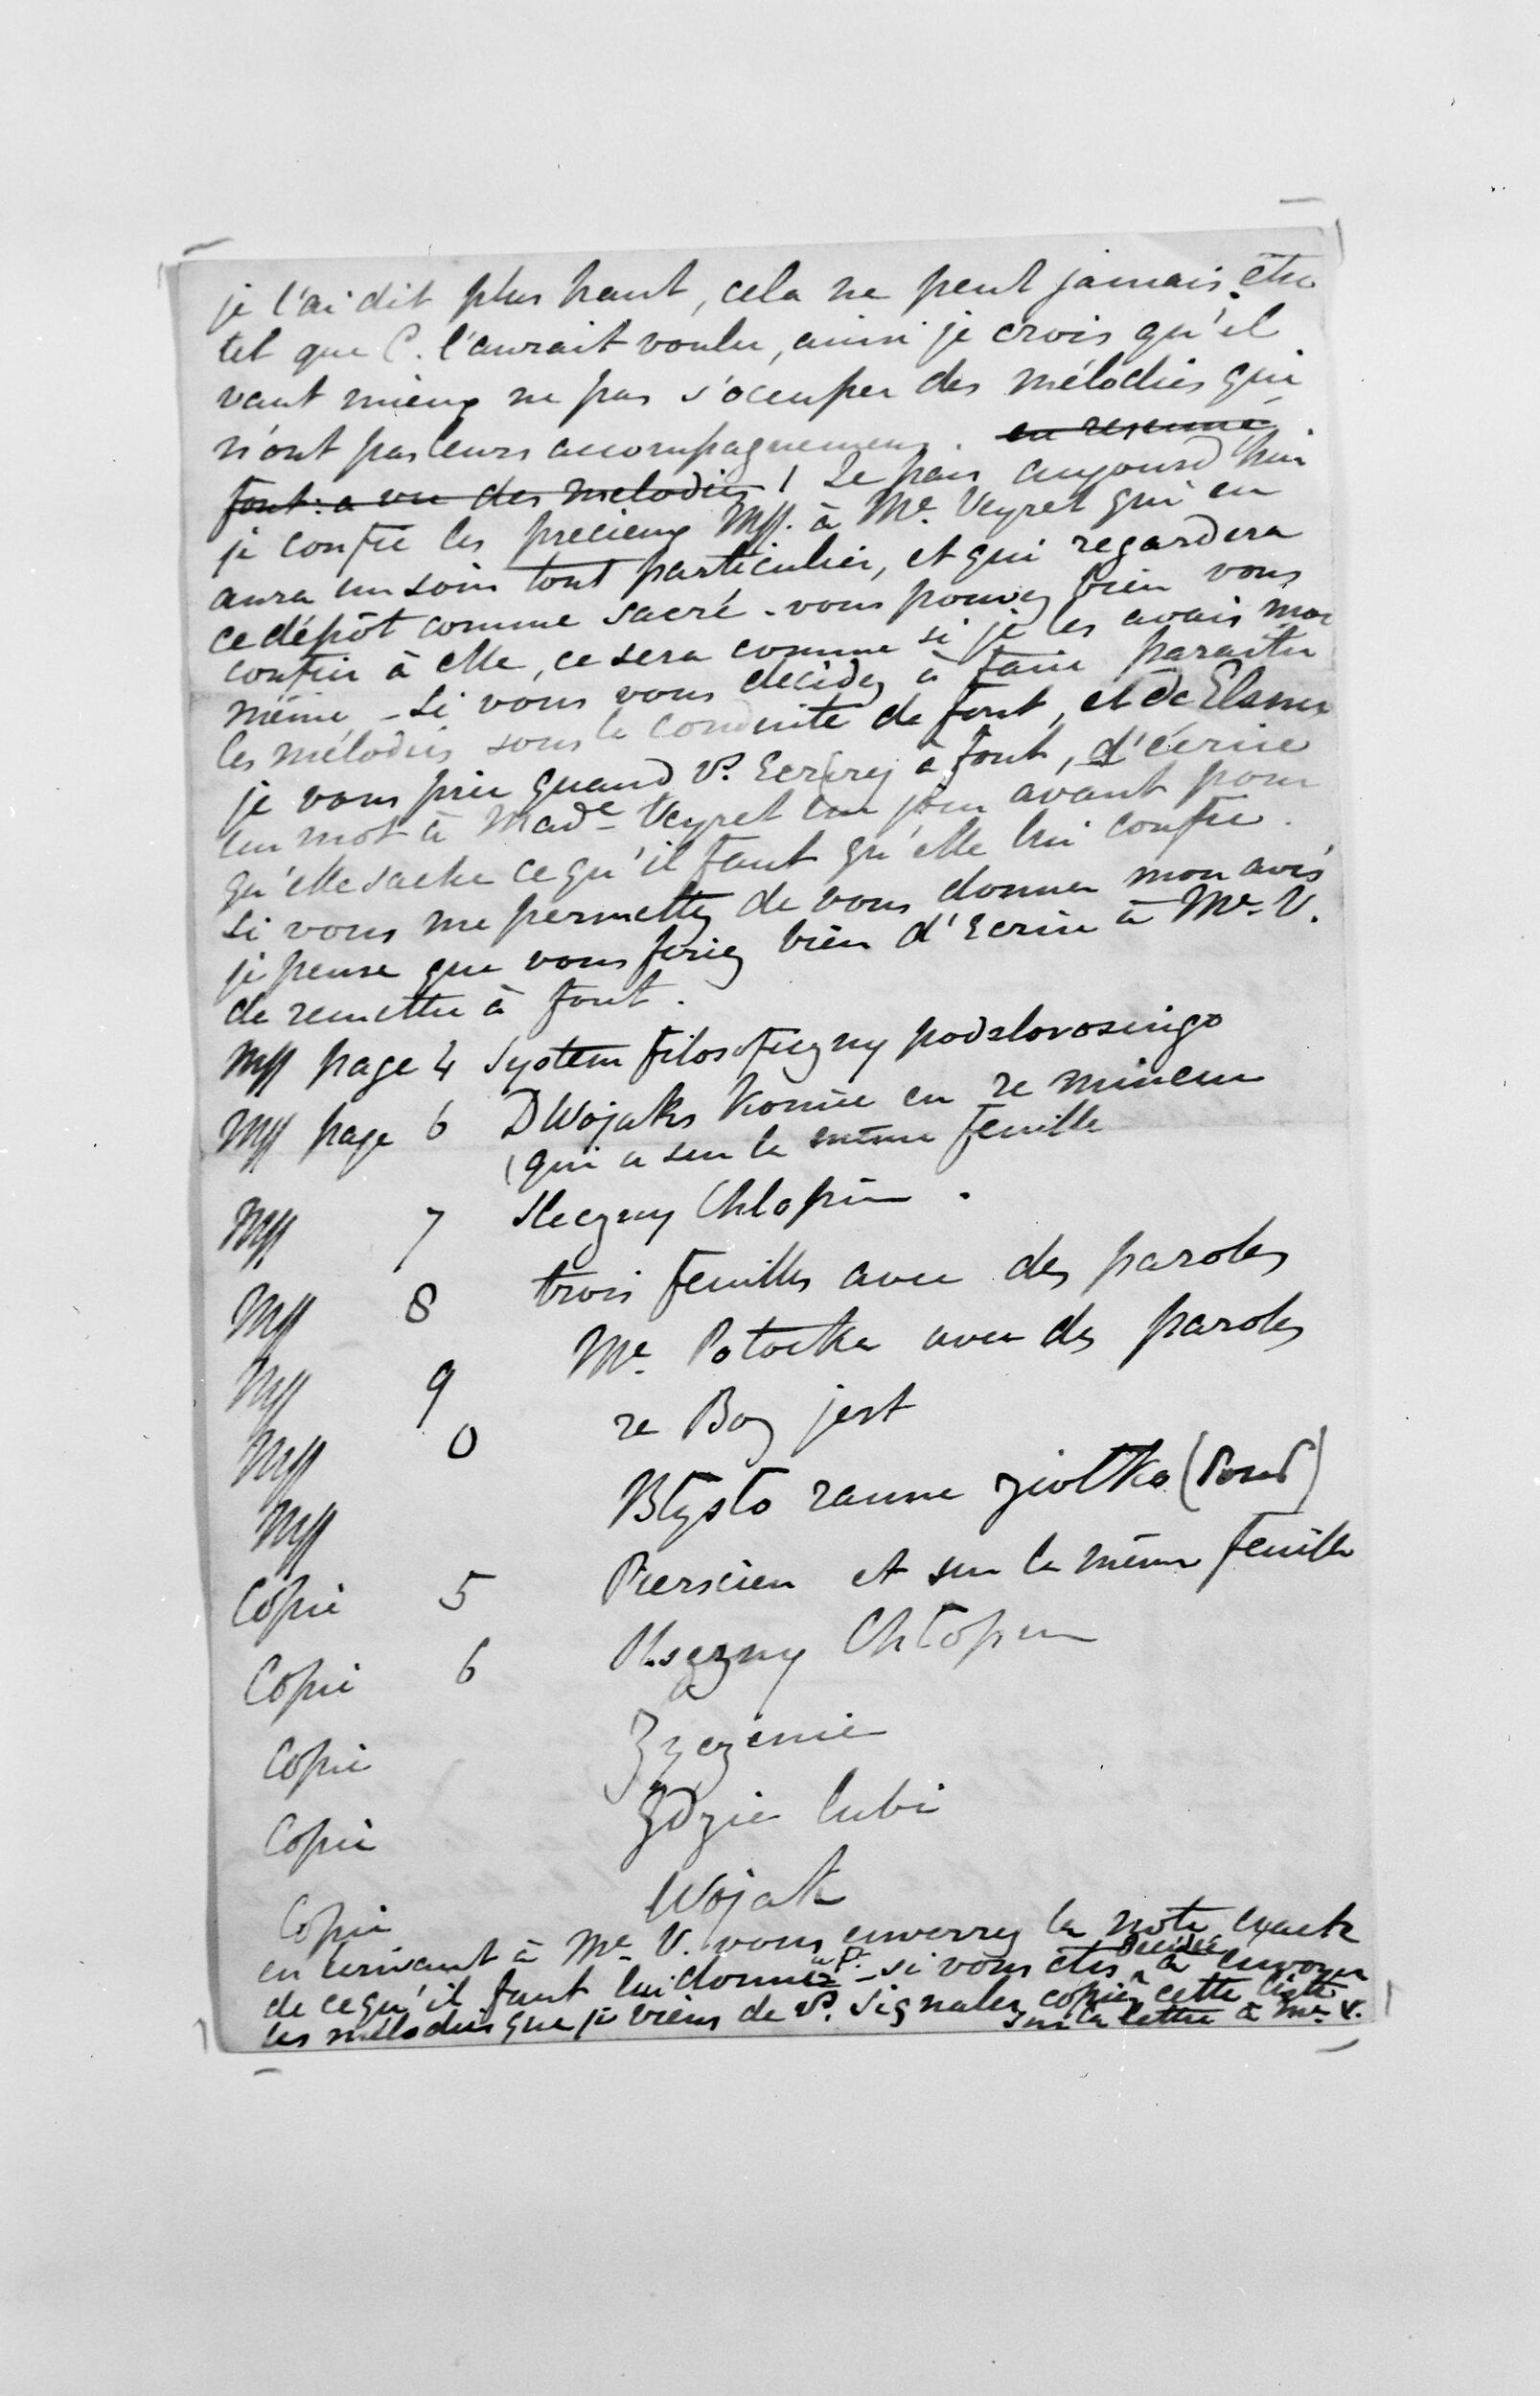 je l'ai dit plus haut, cela ne peut jamais être
tel que C. l'aurait voulu, ainsi je crois qu'il
vaut mieux ne pas s'ocuper des mélodies qui
n'ont pas leurs accompagnemens. en resumé
font: a vu des melodies ! Je pars aujourd'hui
je confie les precieux Mss. à Me. Veyret qui en
aura un soin tout particulier, et qui regardera
ce dépôt comme sacré - vous pouvez bien vous
confier à elle, ce sera comme si je les avais moi
même - Si vous vous decidez à faire paraitre
les mélodies sous la conduite de font, et de Elsner
je vous prie quand vs. Ecrirez à font, d'écrire
un mot à Made Veyret un jour avant pour
qu'elle sache ce qu'il faut qu'elle lui confie.
Si vous me permettez de vous donner mon avis
je pense que vous feriez bien d'Ecrire à Me. V.
de remettre à font.
Mss page 4 System filosoficzny
Mss page 6 D Wojaks Konie en re mineur
(qui a sur la même feuille
Mss 7 Sleczny Chlopiu .
Mss 8 trois feuilles avec des paroles
Mss 9 Me. Potocka avec des paroles
Mss 0 re Boz jest
Mss Blysto ranne ziolka (Pond)
Copie 5 Pierscien et sur la même feuille
Copie 6 Chlopiu
Copie Zyczenie
Copie Gdzie lubi
Copie Wojak
en écrivant à Me. V. vous enverrez la note exacte
de ce qu'il faut lui donner - si vous êtes décidée à envoyer
les mélodies que je viens de vs. signaler, copiez cette liste
sur la lettre à Me. V.